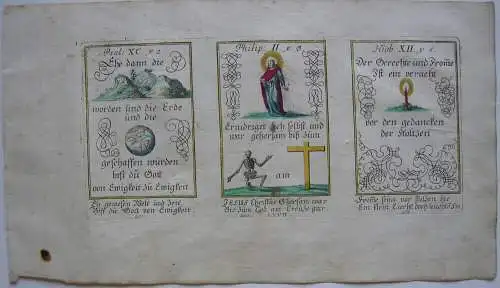 Psal. XC. v 2
Ehe dann die
worden und die Erde
und die
geschaffen wurden
bist du Gott
von Ewigkeit zu Ewigkeit
Bist du Gott von Ewigkeit
Philip. II v 8
Erniedriget sich selbst und
war gehorsam biß zum
am
JESUS Christus Gehorsam war
Biß zum Tod am Creutze gar
Hiob XII v
Der Gerechte und Fromme
Ist ein veracht
vor den gedancken
der Stoltzen
Ein klein Liecht